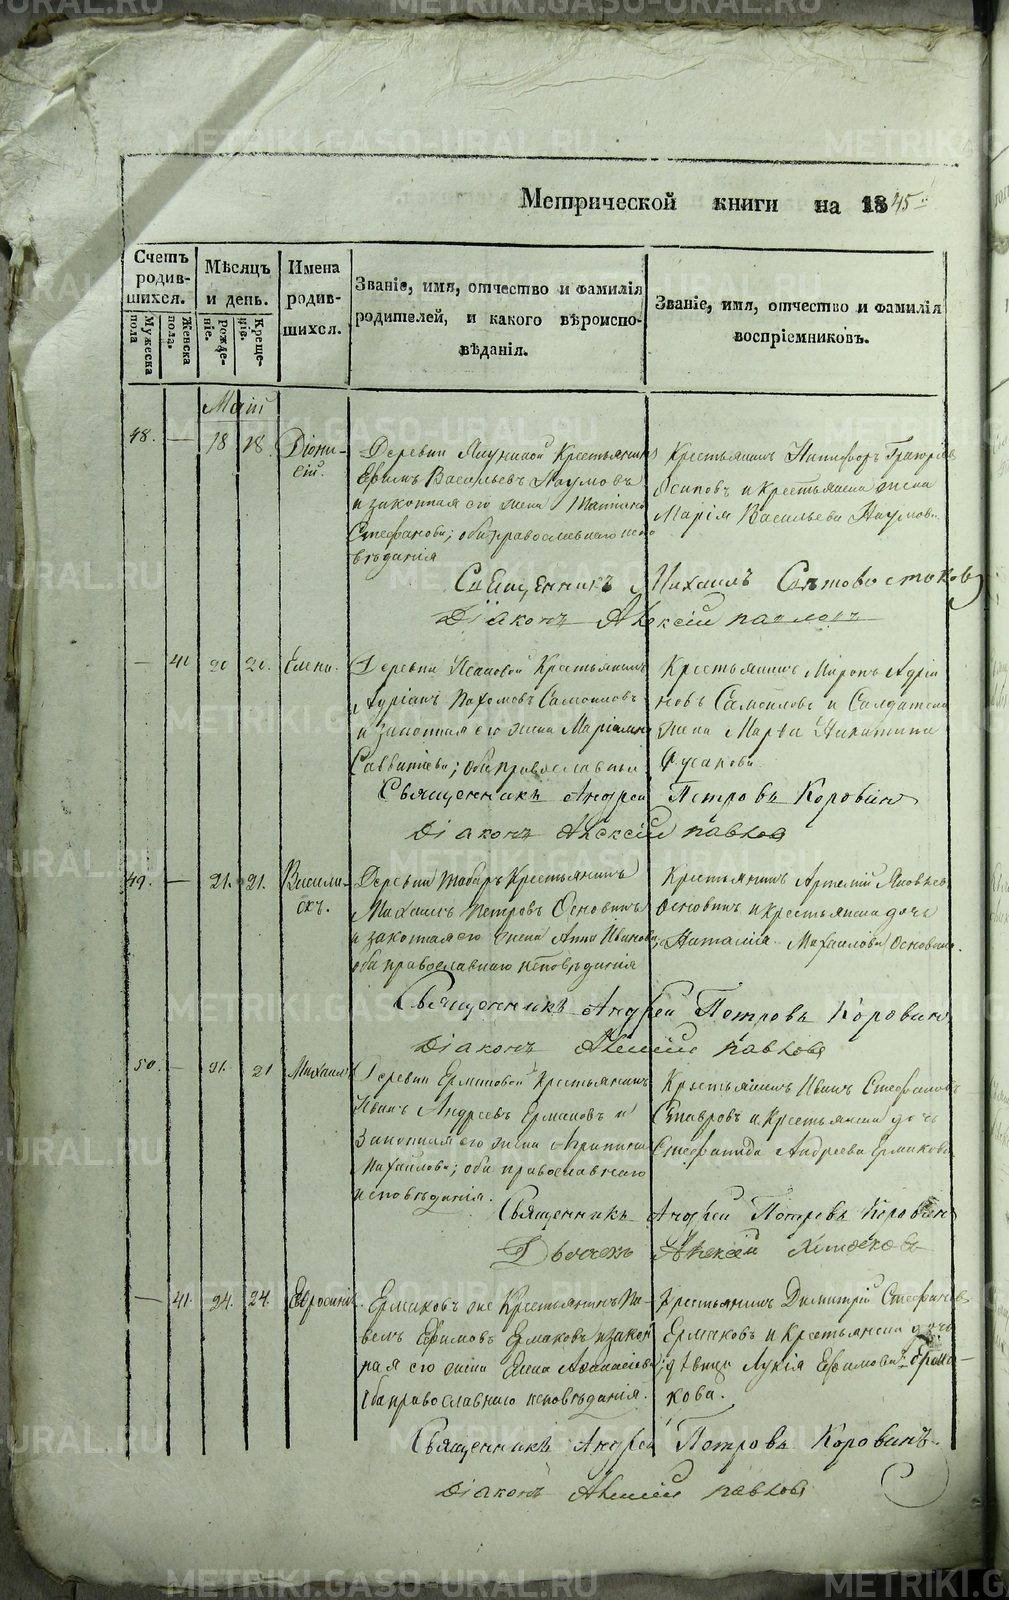 METRIKI.GASO-URAL.RU
Метрической книги на 1845.
Счетъ родив-шихся.
Мужеска пола
Женска пола.
Мѣсяцъ и день.
Рожде-ніе.
Креще-ніе.
Имена родив-шихся.
Званіе, имя, отчество и фамилія
родителей, и какого вѣроиспо-
вѣданія.
Званіе, имя, отчество и фамилія
воспріемниковъ.
Маій
48. — 18 18 Діони-
сій.
Деревни Крестьянинъ
Ефимъ Васильевъ Наумовъ
и законная его жена Татіана
Стефанова; оба православнаго испо
вѣданія
Крестьянинъ Никифоръ Григорьевъ
Осиповъ и крестьянска жена
Марія Васильева Наумова.
Священникъ Михаилъ Свѣтовостоковъ
Діаконъ Алексій Павловъ
— 40 20 20. Елена.
Деревни Крестьянинъ
Адріанъ Пахомовъ Самойловъ
и законная его жена Маріамна
Савватіева; оба православныи
Крестьянинъ Миронъ Адріа
новъ Самойловъ и Солдатска
жена Марѳа Никитина
Русакова
Священникъ Андрей Петровъ Коровинъ
Діаконъ Алексій Павловъ
49. — 21. 21. Василис-
скъ.
Деревни Крестьянинъ
Михаилъ Петровъ Основинъ
и законная его жена Анна Иванова;
оба православнаго исповѣданія
Крестьянинъ Артемій Яковлевъ
Основинъ и крестьянска дочь
Наталія Михайлова Основина.
Священникъ Андрей Петровъ Коровинъ
Діаконъ Алексій Павловъ
50. — 21. 21 Михаилъ
Деревни Ермаковой Крестьянинъ
Иванъ Андреевъ Ермаковъ и
Законная его жена Агрипина
Михайлова; оба православнаго
исповѣданія.
Крестьянинъ Иванъ Стефановъ
Ставровъ и Крестьянска дочь
Стефанида Андреева Ермакова
Священникъ Андрей Петровъ Коровинъ
Дьячекъ Алексій
— 41. 24. 24. Евросинія.
Ермаковъ же Крестьянинъ Па-
велъ Ефимовъ Ермаковъ и закон
ная его жена Елена Аѳанасіева;
оба православнаго исповѣданія.
Крестьянинъ Димитрій Стефановъ
Ермаковъ и Крестьянска дочь
дѣвица Лукія Ефимова Ерма-
кова.
Священникъ Андрей Петровъ Коровинъ.
Діаконъ Алексій Павловъ